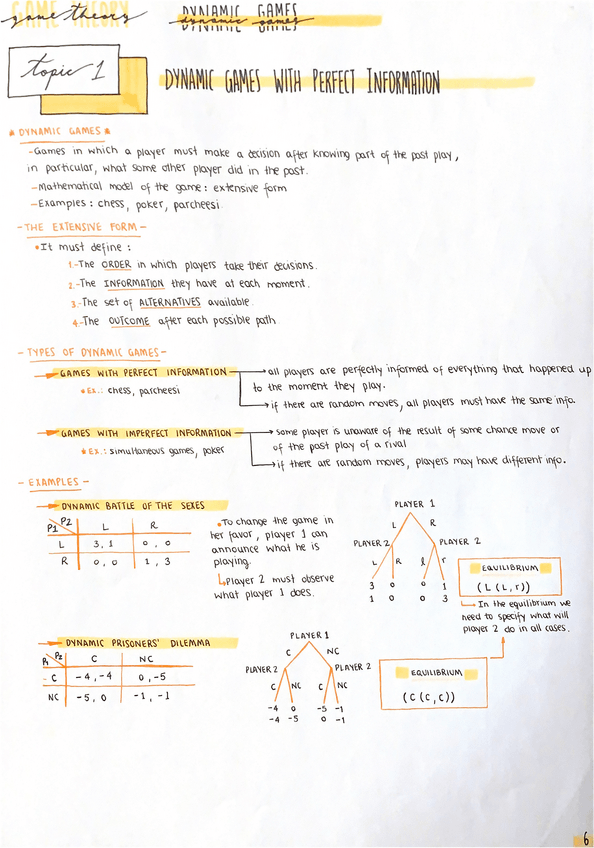 GAME THEORY
game theory
DYNAMIC GAMES
dynamic games
DYNAMIC GAMES
topic 1
DYNAMIC GAMES WITH PERFECT INFORMATION
* DYNAMIC GAMES *
-Games in which a player must make a decision after knowing part of the past play,
in particular, what some other player did in the past.
-Mathematical model of the game: extensive form
-Examples: chess, poker, parcheesi
-THE EXTENSIVE FORM-
*It must define:
1.-The ORDER in which players take their decisions.
2.-The INFORMATION they have at each moment.
3.-The set of ALTERNATIVES available.
4.-The OUTCOME after each possible path
-TYPES OF DYNAMIC GAMES-
GAMES WITH PERFECT INFORMATION
all players are perfectly informed of everything that happened up
to the moment they play.
*Ex.: chess, parcheesi
if there are random moves, all players must have the same info.
GAMES WITH IMPERFECT INFORMATION
some player is unaware of the result of some chance move or
of the past play of a rival
*Ex.: simultaneous games, poker
if there are random moves, players may have different info.
- EXAMPLES -
DYNAMIC BATTLE OF THE SEXES
P1 P2 L R
L 3,1 0,0
R 0,0 1,3
*To change the game in
her favor, player 1 can
announce what he is
playing.
Player 2 must observe
what player 1 does.
PLAYER 1
L R
PLAYER 2 PLAYER 2
L R l r
3 0 0 1
1 0 0 3
EQUILIBRIUM
(L(L,r))
In the equilibrium we
need to specify what will
player 2 do in all cases.
DYNAMIC PRISONERS' DILEMMA
P1 P2 C NC
C -4,-4 0,-5
NC -5,0 -1,-1
PLAYER 1
C NC
PLAYER 2 PLAYER 2
C NC C NC
-4 0 -5 -1
-4 -5 0 -1
EQUILIBRIUM
(C(C,C))
6